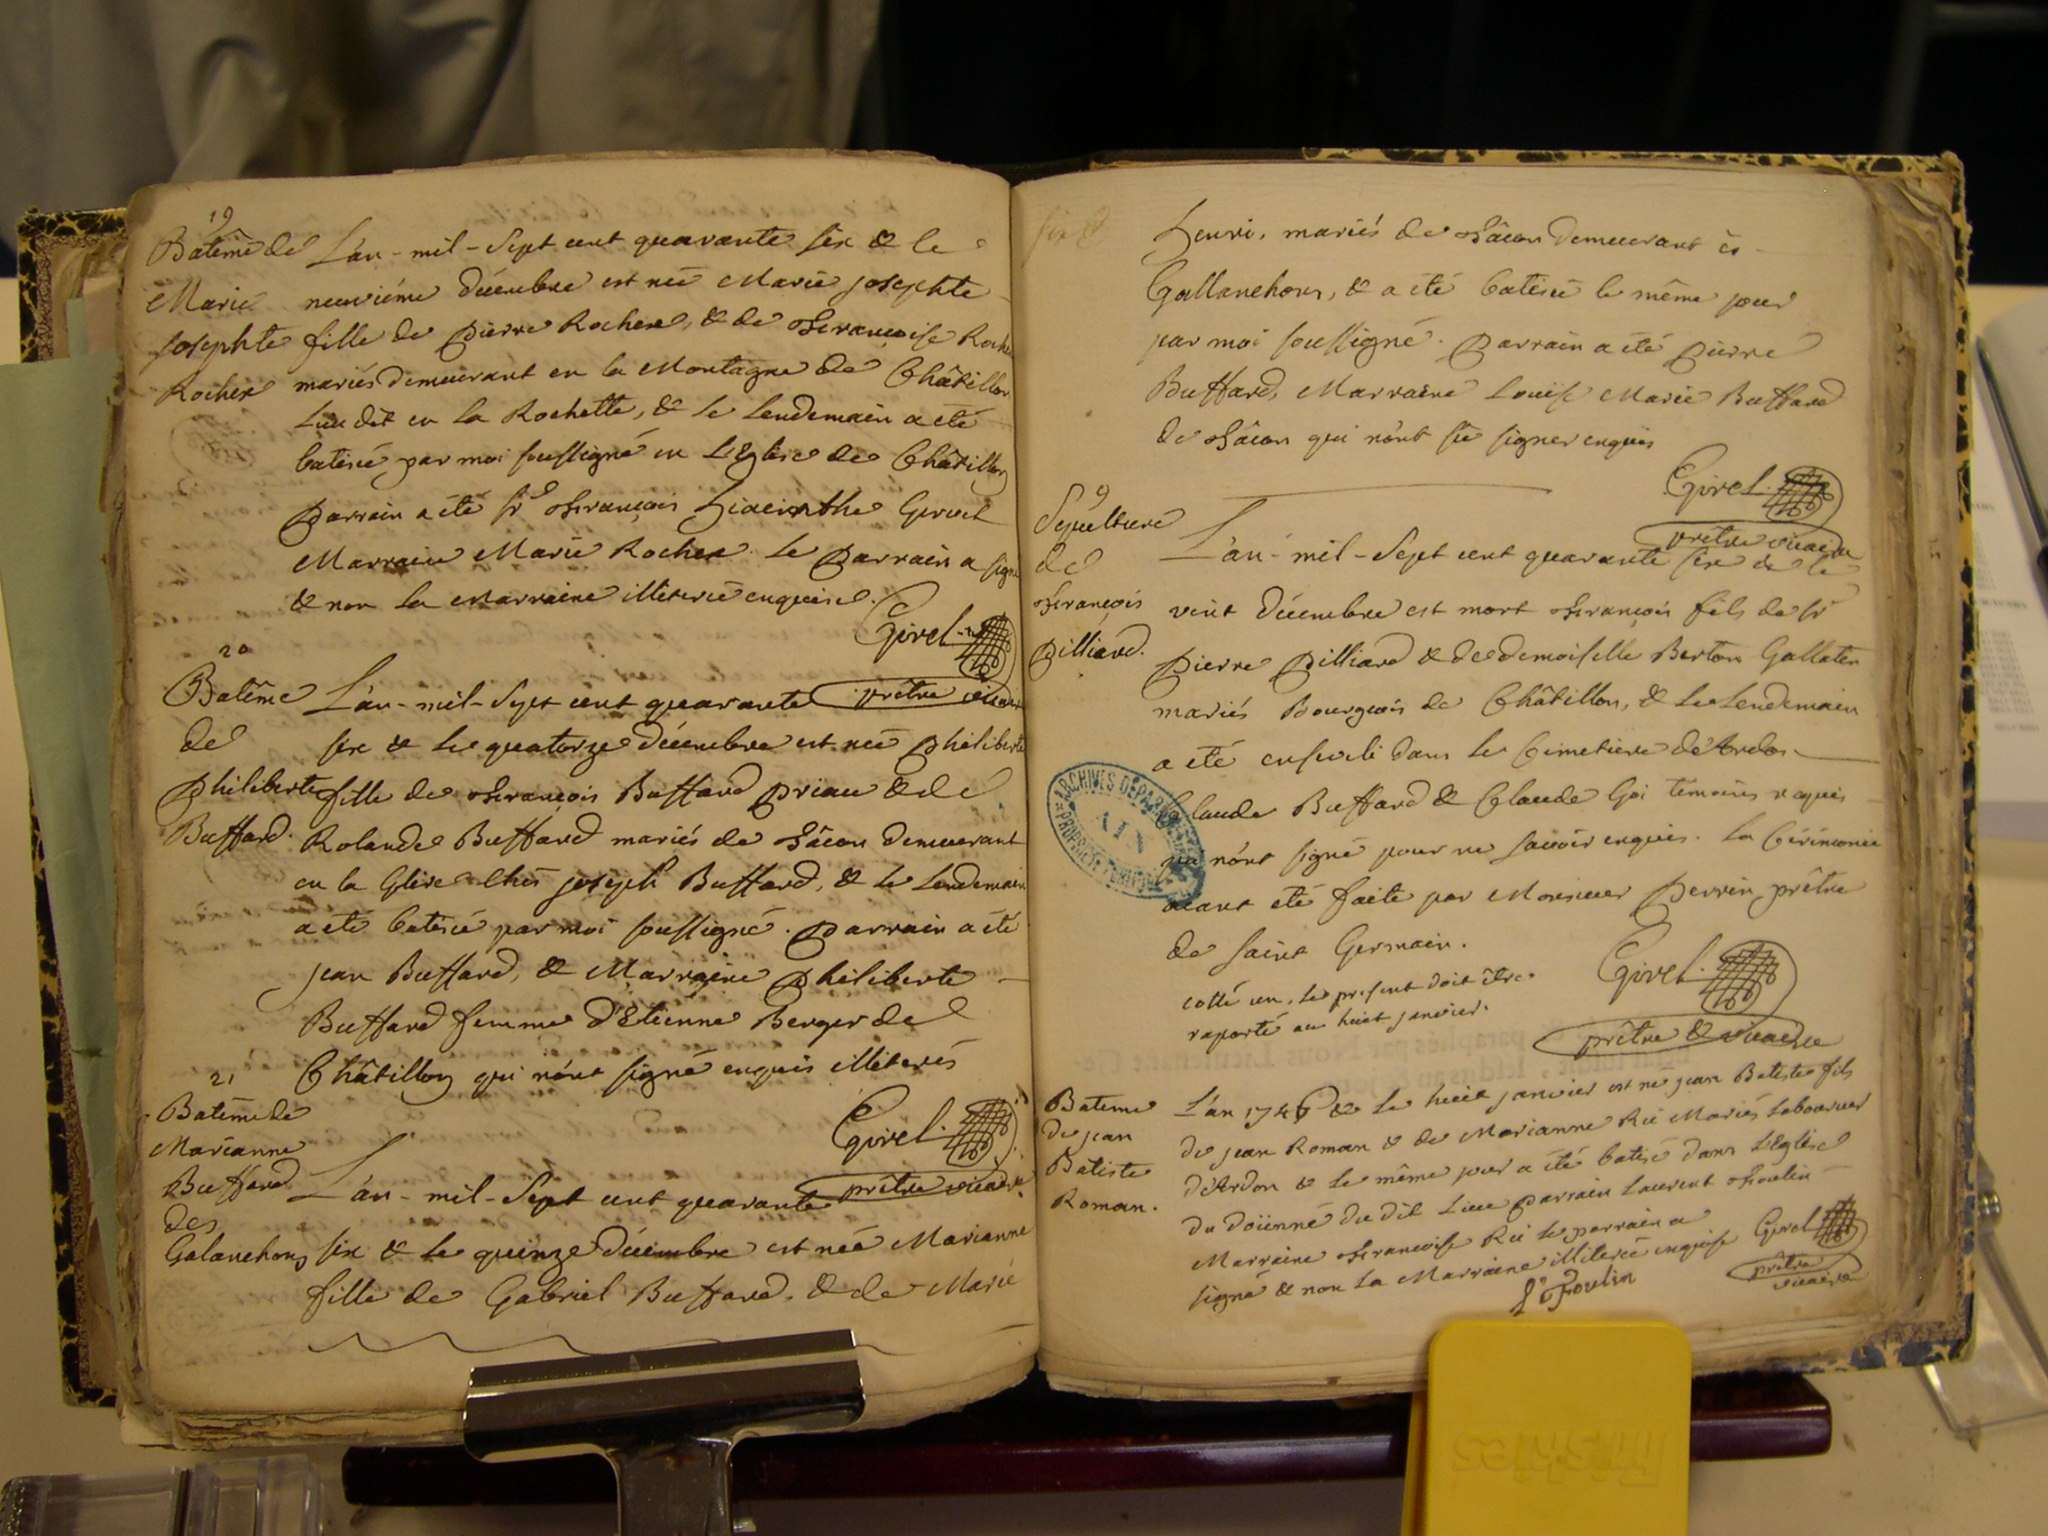 19
Batême de
Marie
Josephte
Rocher
L'an-mil-Sept cent quarante six & le
neuvième décembre est née Marie josephte
fille de Pierre Rocher, & de Françoise Roche
mariés demeurant en la Montagne de Châtillon
Lieu dit en la Rochette, & le Lendemain a été
batisée par moi soussigné en L'Eglise de Châtillon
Parrain a été Sr François Hiacinthe
Marraine Marie Rocher. Le Parrain a signé
& non la Marraine illiterée enquise.
Girel.
prêtre vicaire
20
Batême
de
Philiberte
Buffard.
L'an-mil-Sept cent quarante
six & le quatorze décembre est née Philiberte
fille de François Buffard Priau & de
Rolande Buffard mariés de Lâcon demeurant
en la Glière chés joseph Buffard, & le Lendemain
a été batisée par moi soussigné. Parrain a été
jean Buffard, & Marraine Philiberte
Buffard femme d'Etienne Berger de
Châtillon qui n'ont signé enquis illiterés
Girel.
prêtre vicaire
21
Batême de
Marianne
Buffard
des
Galanchons
L'an-mil-Sept cent quarante
six & le quinze décembre est née Marianne
fille de Gabriel Buffard, & de Marie
six &
Henri, mariés de Lâcon demeurant ès
Gallanchons, & a été batisée le même jour
par moi soussigné. Parrain a été Pierre
Buffard, Marraine Louise Marie Buffard
de Lâcon qui n'ont sû signer enquis
Girel.
prêtre vicaire
9
Sepulture
de
François
Pilliard.
L'an-mil-Sept cent quarante six & le
vint décembre est mort François fils de Sr
Pierre Pilliard & de demoiselle Berton Gallatin
mariés Bourgeois de Châtillon, & le Lendemain
a été enseveli dans le Cimetiere d'Ardon
Claude Buffard & Claude Goi témoins requis
qui n'ont signé pour ne savoir enquis. La Cérémonie
aiant été faite par Monsieur Perrin prêtre
de saint Germain.
Girel.
prêtre & vicaire
cotté un, le present doit être
raporté au huit janvier.
ARCHIVES DÉPARTEMENTALES
AIN
PROPRIÉTÉ PUBLIQUE
Bateme
de jean
Batiste
Roman.
L'an 1746 & le huit janvier est né jean Batiste fils
de jean Roman & de Marianne Rii Mariés Laboureur
d'Ardon & le même jour a été batisé dans L'Eglise
du doïenné du dit Lieu Parrain Laurent Foulin
Marraine Francoise Rii le parrain a
signé & non la Marraine illiterée enquise
Girel
prêtre
vicaire
L Foulin